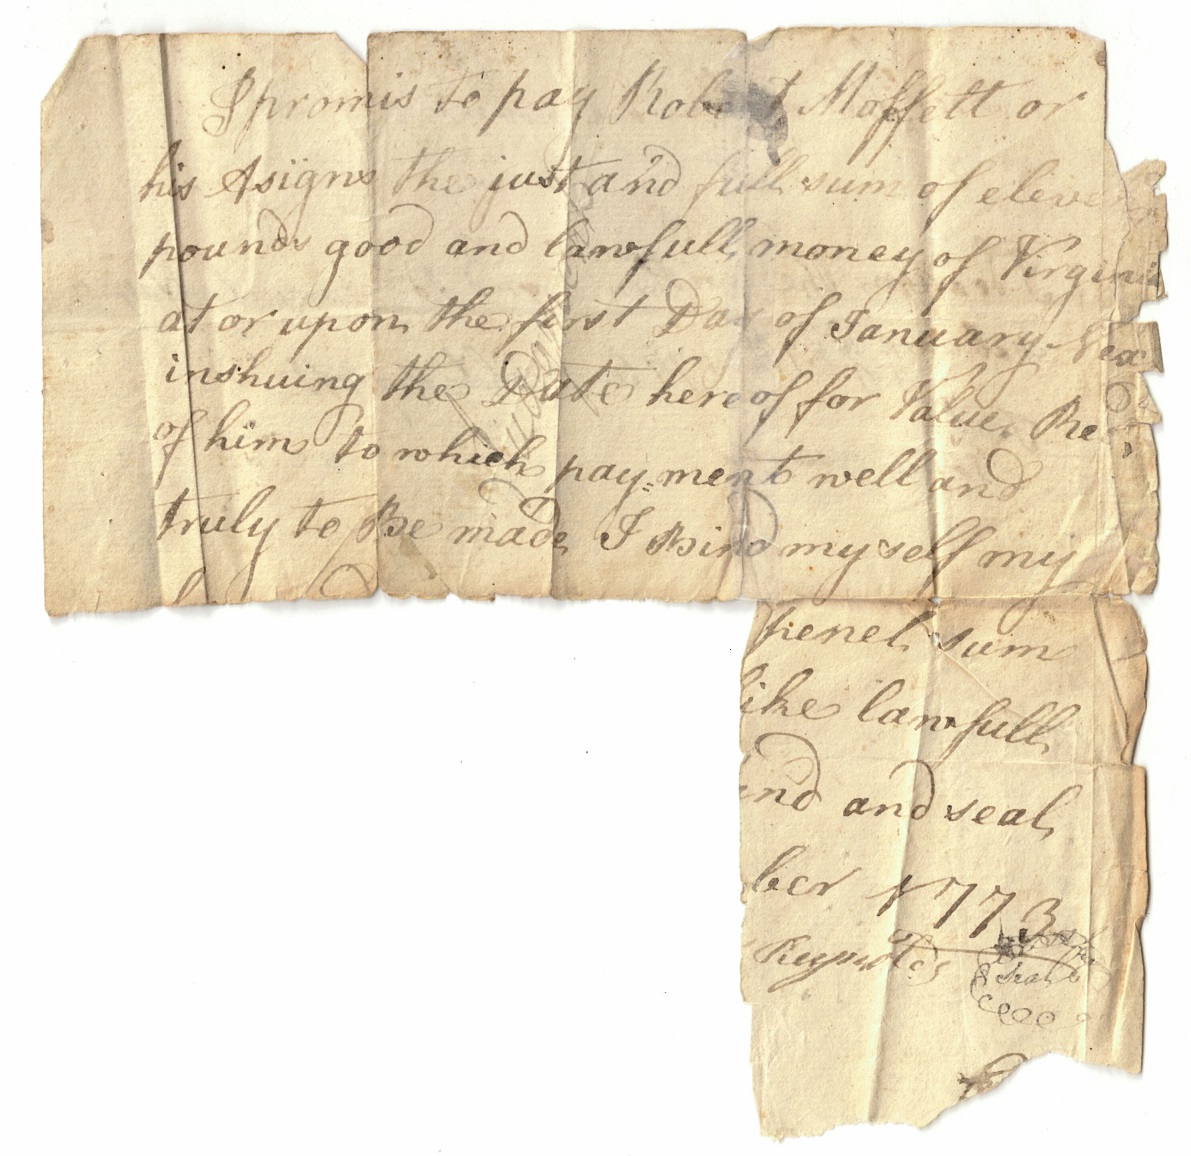 I promis to pay Robert Moffett or
his Asigns the just and full sum of eleven
pounds good and lawfull money of Virginia
at or upon the first Day of January Nex
inshuing the Date hereof for Value Re
of him to which pay=ment well and
truly to Be made I Bind my self my
penel sum
like lawfull
and and seal
ber 1773
Reynolds
Seal